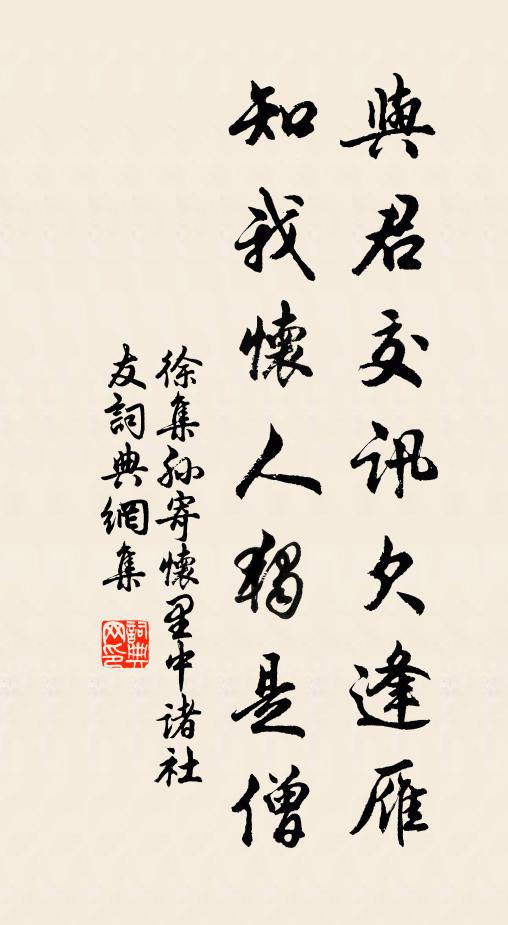 與君交訊欠逢雁
知我懷人獨是僧
徐集孫寄懷里中诸社
友詞典網集
詞典
网印